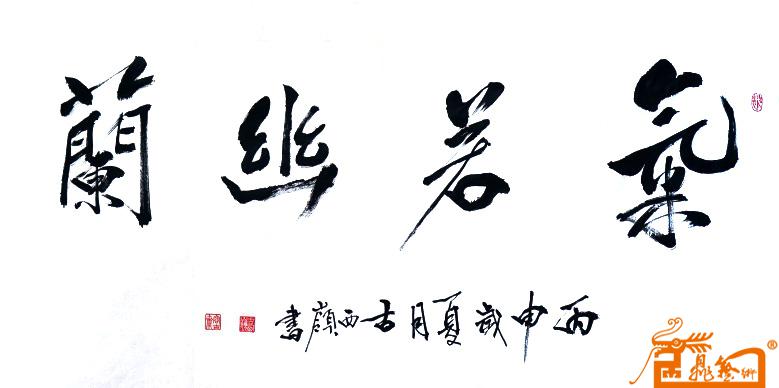 氣若幽蘭
丙申歲夏月古西嶺書